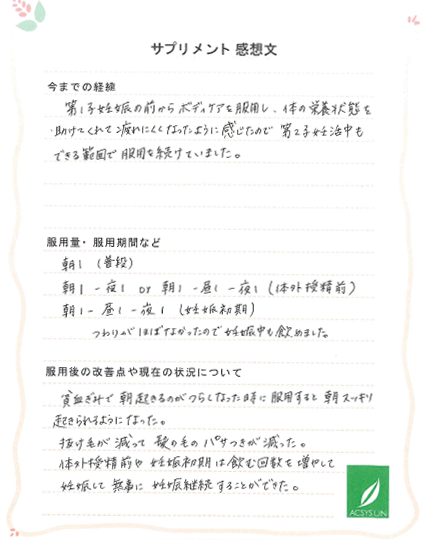 サプリメント 感想文
今までの経緯
第1子妊娠の前からボディケアを服用し、体の栄養状態を
助けてくれて疲れにくくなったように感じたので 第2子妊活中も
できる範囲で服用を続けていました。
服用量・服用期間など
朝1 (普段)
朝1-夜1 or 朝1-昼1-夜1 (体外授精前)
朝1-昼1-夜1 (妊娠初期)
つわりがほぼなかったので妊娠中も飲めました。
服用後の改善点や現在の状況について
貧血ぎみで朝起きるのがつらくなった時に服用すると朝スッキリ
起きられるようになった。
抜け毛が減って髪の毛のパサつきが減った。
体外授精前や妊娠初期は飲む回数を増やして
妊娠して無事に妊娠継続することができた。
ACSYS LIN